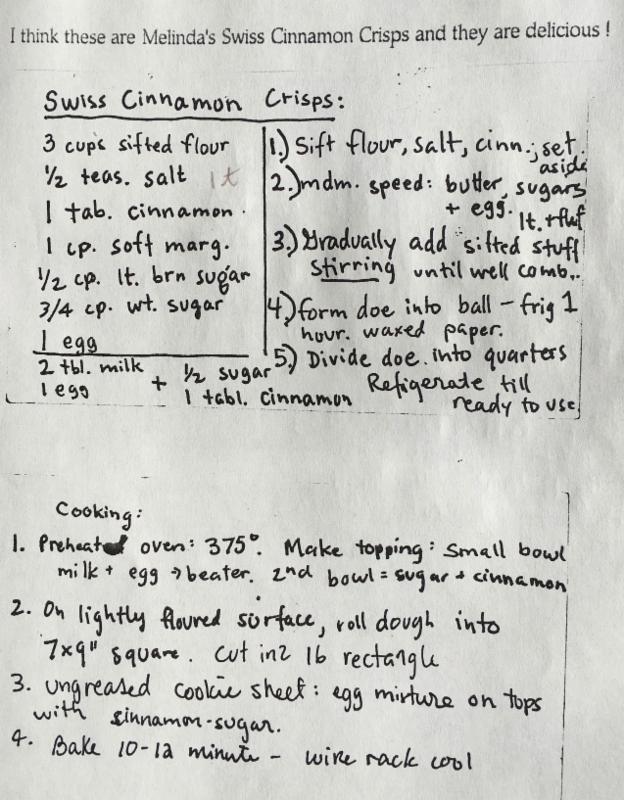 I think these are Melinda's Swiss Cinnamon Crisps and they are delicious !
Swiss Cinnamon Crisps:
3 cups sifted flour
1/2 teas. salt 1t
1 tab. cinnamon.
1 cp. soft marg.
1/2 cp. lt. brn sugar
3/4 cp. wt. sugar
1 egg
2 tbl. milk + 1/2 sugar
1 egg 1 tabl. cinnamon
1.) Sift flour, salt, cinn.; set
aside
2.) mdm. speed: butter, sugars
+ egg. lt. + fluf
3.) Gradually add sifted stuff
stirring until well comb..
4.) form doe into ball - frig 1
hour. waxed paper.
5.) Divide doe into quarters
Refigerate till
ready to use
Cooking:
1. Preheat oven: 375°. Make topping: Small bowl
milk + egg → beater. 2nd bowl = sugar + cinnamon
2. On lightly floured surface, roll dough into
7x9" square. Cut in2 16 rectangle
3. ungreased cookie sheet: egg mixture on tops
with sinnamon-sugar.
4. Bake 10-12 minute - wire rack cool